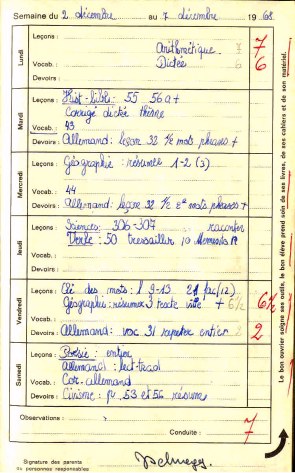 Semaine du 2 décembre au 7 décembre 1968
Lundi
Leçons : Arithmétique 7 7
Vocab. : Dictée 6 6
Devoirs :
Mardi
Leçons : Hist-bibl: 55 56a+
Corrigé dictée thème
Vocab. : 43
Devoirs : Allemand: leçon 32 ½ mots phrases +
Mercredi
Leçons : Géographie : résumés 1-2 (3)
Vocab. : 44
Devoirs : Allemand: leçon 32 ½ 2e mots phrases +
Jeudi
Leçons : Sciences: 306-307 raconter
Verbe: 50 tressaillir 10
Vocab. :
Devoirs :
Vendredi
Leçons : Clé des mots: l 9-13 21 fac(12)
Géographie: résumés 3 + 6½ 6½
Vocab. :
Devoirs : Allemand: voc 31 entier 2 2
Samedi
Leçons : Poésie : entière
Allemand : lect-trad
Vocab. : Cor. allemand
Devoirs : Civisme: pv 53 et 56 résumé
Observations :
Conduite : 7
Signature des parents
ou personnes responsables
Le bon ouvrier soigne ses outils, le bon élève prend soin de ses livres, de ses cahiers et de son matériel.